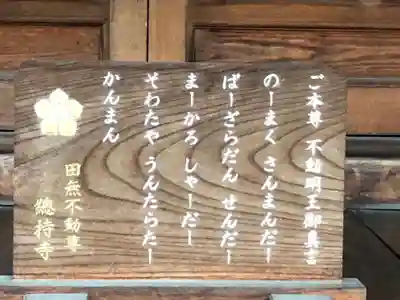 ご本尊 不動明王御真言
のーまく さんまんだー
ばーざらだん せんだー
まーかろ しゃーだー
そわたや うんたらたー
かんまん
田無不動尊
總持寺